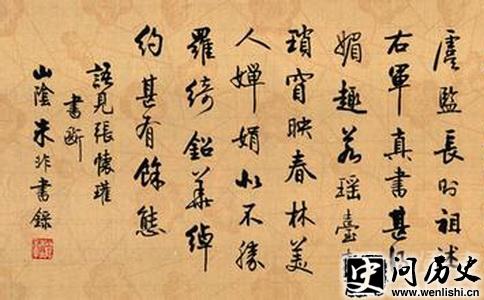 虞監長於祖述
右軍真書甚
媚趣若瑤臺
瑣窅映春林美
人嬋娟似不勝
羅綺鉛華綽
約甚有餘態
語見張懷瓘
書斷
山陰朱非書錄
史问历史
www.wenlishi.cn